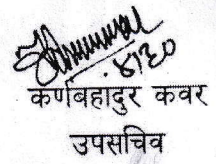 ४।३०
कर्णबहादुर कवर
उपसचिव